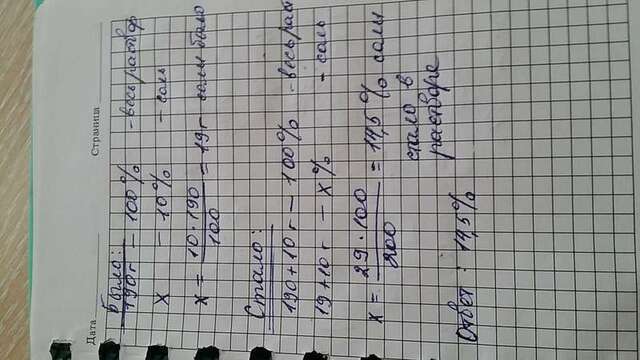 Дата
Страница
Было:
190г - 100% - весь раствор
х - 10% - соль
х = 10 · 190 / 100 = 19г соли было
Стало:
190+10г - 100% - весь рас
19+10г - х% - соль
х = 29 · 100 / 200 = 14,5% соли
стало в
растворе
Ответ: 14,5%